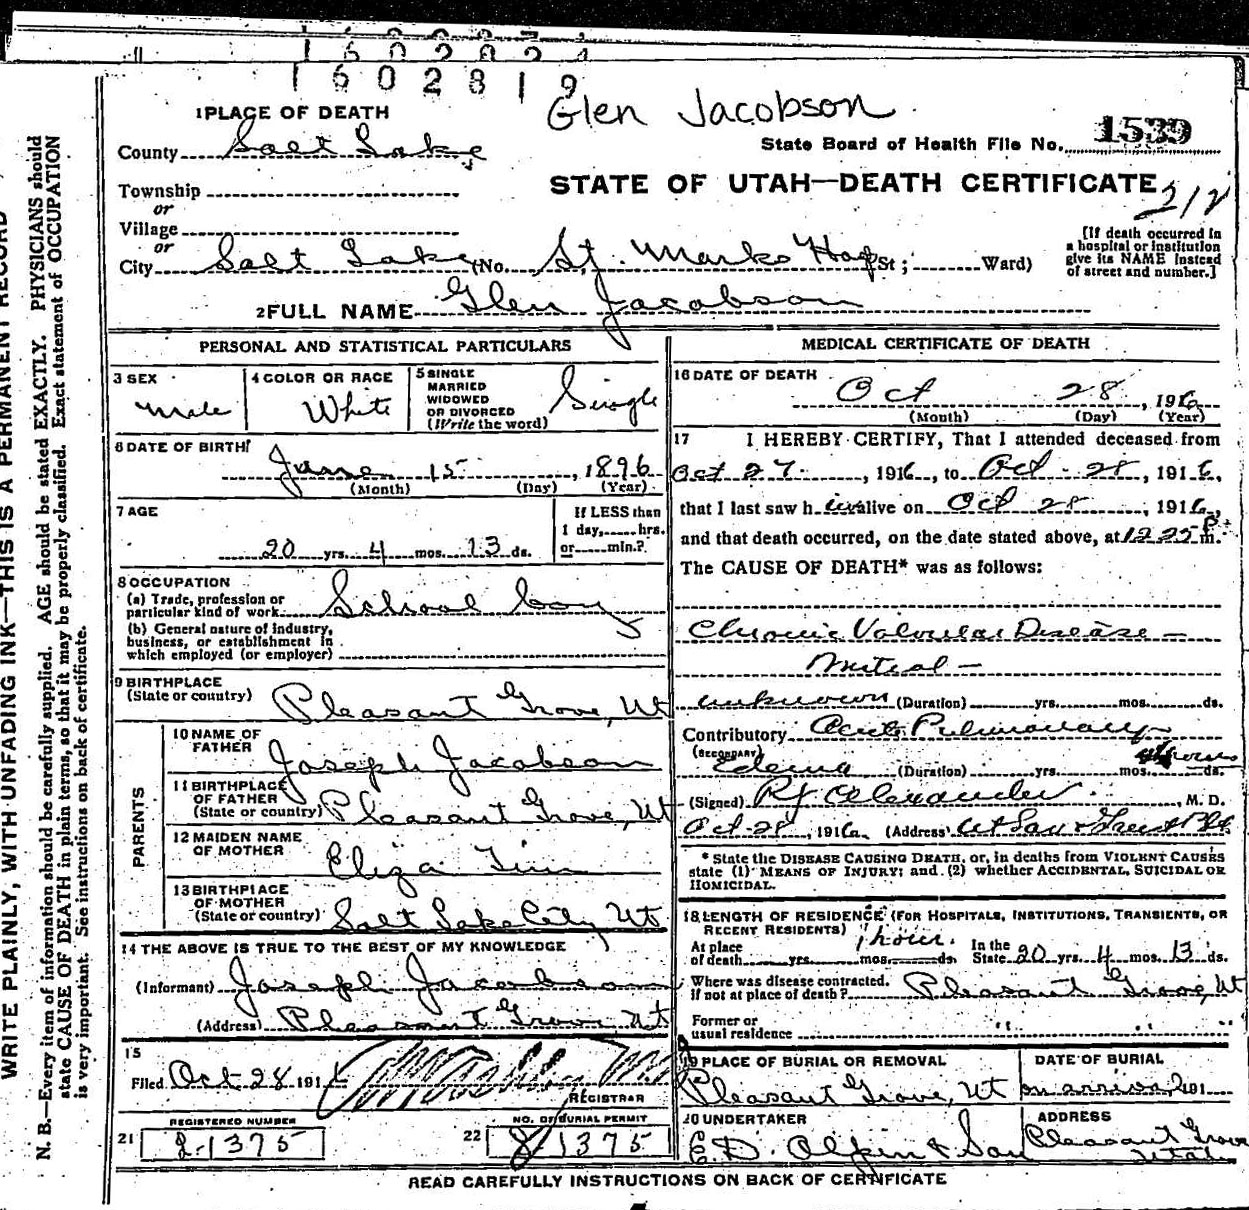 1602819
Glen Jacobson
1 PLACE OF DEATH
State Board of Health File No. 1539
County Salt Lake
STATE OF UTAH—DEATH CERTIFICATE
Township
or
Village
or
212
[If death occurred in
a hospital or institution
give its NAME instead
of street and number.]
City Salt Lake (No. St. Marks Hosp St ; Ward)
2 FULL NAME Glen Jacobson
PERSONAL AND STATISTICAL PARTICULARS
3 SEX
Male
4 COLOR OR RACE
White
5 SINGLE
MARRIED
WIDOWED
OR DIVORCED
(Write the word)
Single
6 DATE OF BIRTH
June 15 , 1896
(Month) (Day) (Year)
7 AGE
20 yrs. 4 mos. 13 ds.
If LESS than
1 day, hrs.
or min.?
8 OCCUPATION
(a) Trade, profession or
particular kind of work School boy
(b) General nature of industry,
business, or establishment in
which employed (or employer)
9 BIRTHPLACE
(State or country) Pleasant Grove, Ut
PARENTS
10 NAME OF
FATHER Joseph Jacobson
11 BIRTHPLACE
OF FATHER
(State or country) Pleasant Grove, Ut
12 MAIDEN NAME
OF MOTHER Eliza
13 BIRTHPLACE
OF MOTHER
(State or country) Salt Lake City Ut
14 THE ABOVE IS TRUE TO THE BEST OF MY KNOWLEDGE
(Informant) Joseph Jacobson
(Address) Pleasant Grove Ut
15
Filed Oct 28 191
REGISTRAR
REGISTERED NUMBER
21 2-1375
NO. OF BURIAL PERMIT
22 1375
MEDICAL CERTIFICATE OF DEATH
16 DATE OF DEATH
Oct 28 , 1916
(Month) (Day) (Year)
17 I HEREBY CERTIFY, That I attended deceased from
Oct 27 , 1916, to Oct 28 , 1916,
that I last saw h im alive on Oct 28 , 1916,
and that death occurred, on the date stated above, at 12 25 P m.
The CAUSE OF DEATH* was as follows:
Chronic Valvular Disease —
Mitral —
unknown (Duration) yrs. mos. ds.
Contributory Acute Pulmonary
(SECONDARY)
Edema (Duration) yrs. mos. hours ds.
(Signed) RJ Alexander , M. D.
Oct 28 , 1916 (Address)
* State the DISEASE CAUSING DEATH, or, in deaths from VIOLENT CAUSES
state (1) MEANS OF INJURY; and (2) whether ACCIDENTAL, SUICIDAL OR
HOMICIDAL.
18 LENGTH OF RESIDENCE (FOR HOSPITALS, INSTITUTIONS, TRANSIENTS, OR
RECENT RESIDENTS)
At place
of death yrs. mos. ds. 1 hour.
In the
State 20 yrs. 4 mos. 13 ds.
Where was disease contracted,
if not at place of death? Pleasant Grove, Ut
Former or
usual residence " " "
19 PLACE OF BURIAL OR REMOVAL
Pleasant Grove, Ut
DATE OF BURIAL
on arrival 191
20 UNDERTAKER
E.D. Olpin & Son
ADDRESS
Pleasant Grove
Utah
READ CAREFULLY INSTRUCTIONS ON BACK OF CERTIFICATE
WRITE PLAINLY, WITH UNFADING INK—THIS IS A PERMANENT RECORD
N. B.—Every item of information should be carefully supplied. AGE should be stated EXACTLY. PHYSICIANS should
state CAUSE OF DEATH in plain terms, so that it may be properly classified. Exact statement of OCCUPATION
is very important. See instructions on back of certificate.